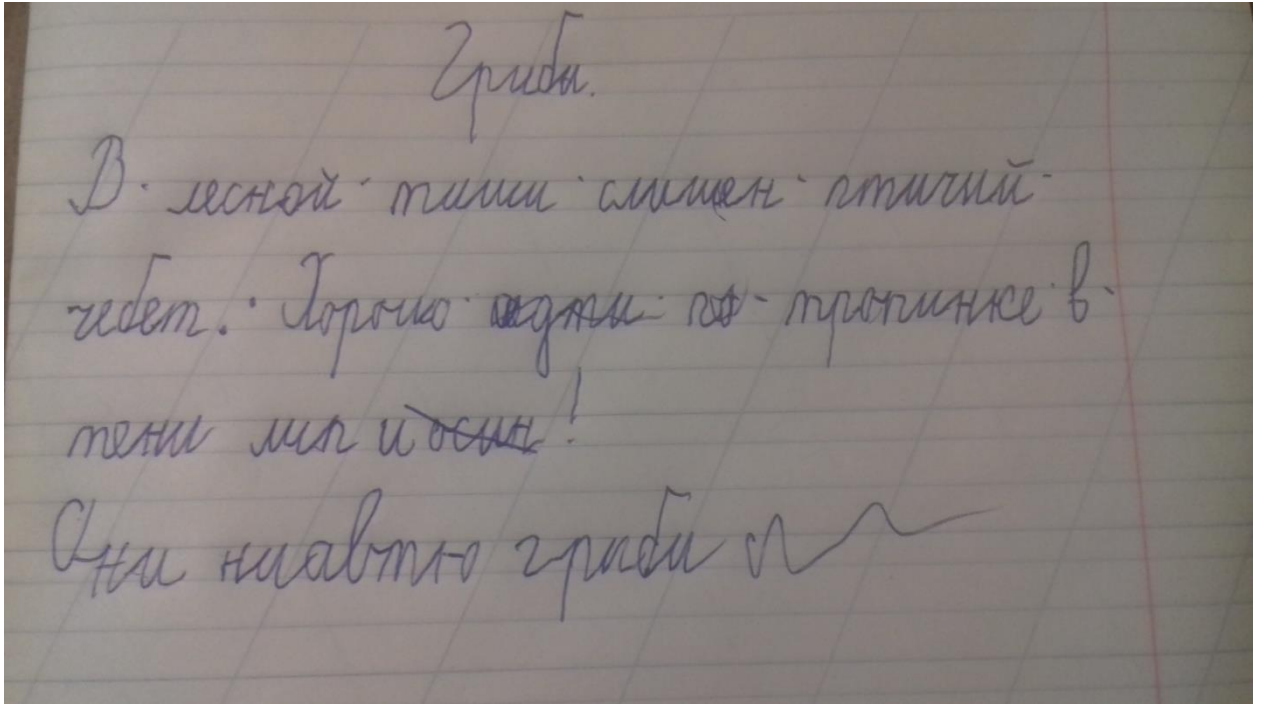 Грибы.
В лесной тиши слишен птичий
чебет. Хорошо идти по тропинке в
тени лип и осин!
Они ниавтю гриби